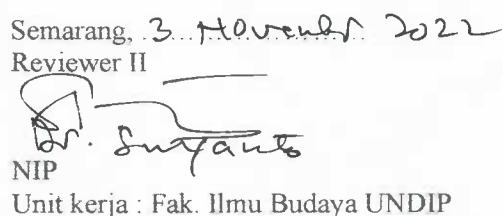 Semarang, 3 November 2022
Reviewer II
Dr. Suryanto
NIP
Unit kerja : Fak. Ilmu Budaya UNDIP